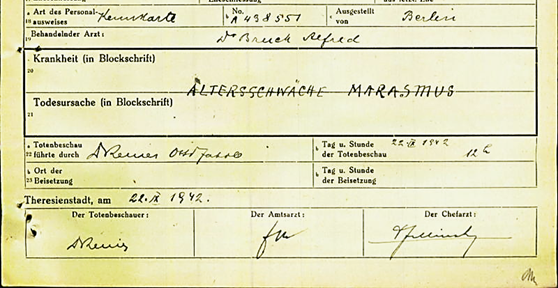 Art des Personal- Kennkarte No. A 438551 Ausgestellt Berlin
18 ausweises von
Behandelnder Arzt: Dr Bruck Alfred
19
Krankheit (in Blockschrift)
20
ALTERSSCHWÄCHE MARASMUS
Todesursache (in Blockschrift)
21
a Totenbeschau b Tag u. Stunde 22.IX 1942
22 führte durch der Totenbeschau 12 h
a Ort der b Tag u. Stunde
23 Beisetzung der Beisetzung
Theresienstadt, am 22.IX 1942.
Der Totenbeschauer: Der Amtsarzt: Der Chefarzt: